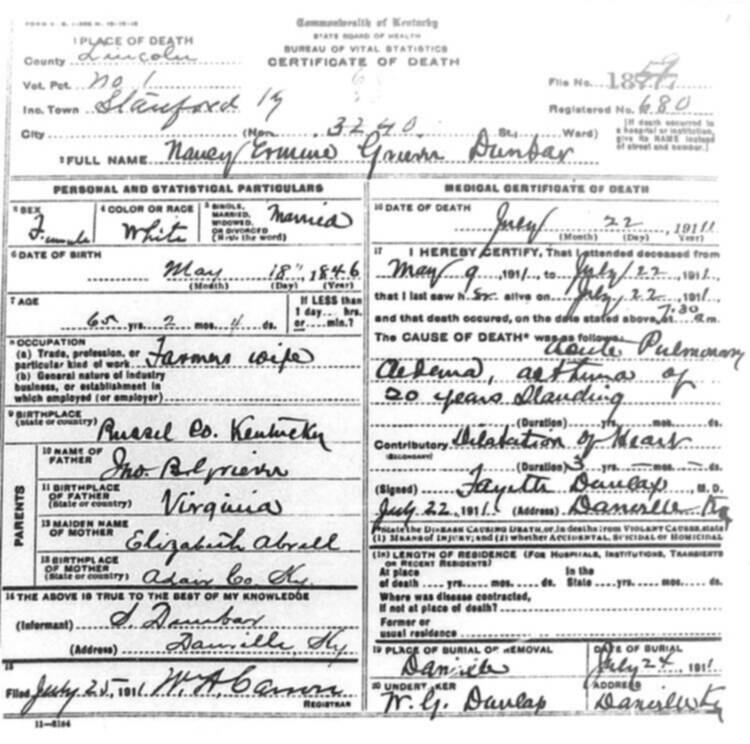 Commonwealth of Kentucky
STATE BOARD OF HEALTH
BUREAU OF VITAL STATISTICS
CERTIFICATE OF DEATH
1 PLACE OF DEATH
County Lincoln
Vot. Pct. No 1
Inc. Town Stanford Ky
City (No. 3240. St., Ward)
File No.
Registered No. 680
[If death occurred in a hospital or institution, give its NAME instead of street and number.]
2 FULL NAME Nancy Ermine Dunbar
PERSONAL AND STATISTICAL PARTICULARS
3 SEX
Female
4 COLOR OR RACE
White
5 SINGLE, MARRIED, WIDOWED, OR DIVORCED
(Write the word)
Married
6 DATE OF BIRTH
May 18", 1846
(Month) (Day) (Year)
7 AGE
65 yrs. 2 mos. 4 ds.
If LESS than
1 day... hrs.
or .... min.?
8 OCCUPATION
(a) Trade, profession, or
particular kind of work Farmers wife
(b) General nature of industry
business, or establishment in
which employed (or employer)
9 BIRTHPLACE
(State or country)
Russel Co. Kentucky
PARENTS
10 NAME OF
FATHER
Jno.
11 BIRTHPLACE
OF FATHER
(State or country)
Virginia
12 MAIDEN NAME
OF MOTHER
Elizabeth
13 BIRTHPLACE
OF MOTHER
(State or country)
Adair Co. Ky.
14 THE ABOVE IS TRUE TO THE BEST OF MY KNOWLEDGE
(Informant) S. Dunbar
(Address) Danville, Ky
15
Filed July 25, 1911 W. A. Carson
REGISTRAR
11-8184
MEDICAL CERTIFICATE OF DEATH
16 DATE OF DEATH
July 22, 1911
(Month) (Day) (Year)
17 I HEREBY CERTIFY, That I attended deceased from
May 9, 1911 to July 22, 1911
that I last saw her alive on July 22, 1911
and that death occured, on the date stated above, at 7:30 am.
The CAUSE OF DEATH* was as follows:
Acute Pulmonary
Aedema, asthma of
20 years Standing
(Duration) yrs. mos. ds.
Contributory Dilatation of Heart
(SECONDARY)
(Duration) 3 yrs. mos. ds.
(Signed) Fayette Dunlap M. D.
July 22, 1911. (Address) Danville Ky
*State the DISEASE CAUSING DEATH, or, in deaths from VIOLENT CAUSES, state
(1) MEANS OF INJURY; and (2) whether ACCIDENTAL, SUICIDAL or HOMICIDAL
18 LENGTH OF RESIDENCE (FOR HOSPITALS, INSTITUTIONS, TRANSIENTS
OR RECENT RESIDENTS)
At place
of death .... yrs. mos. ds.
In the
State .... yrs. mos. ds.
Where was disease contracted,
if not at place of death?
Former or
usual residence
19 PLACE OF BURIAL OR REMOVAL
Danville
DATE OF BURIAL
July 24, 1911
20 UNDERTAKER
W. G. Dunlap
ADDRESS
Danville Ky